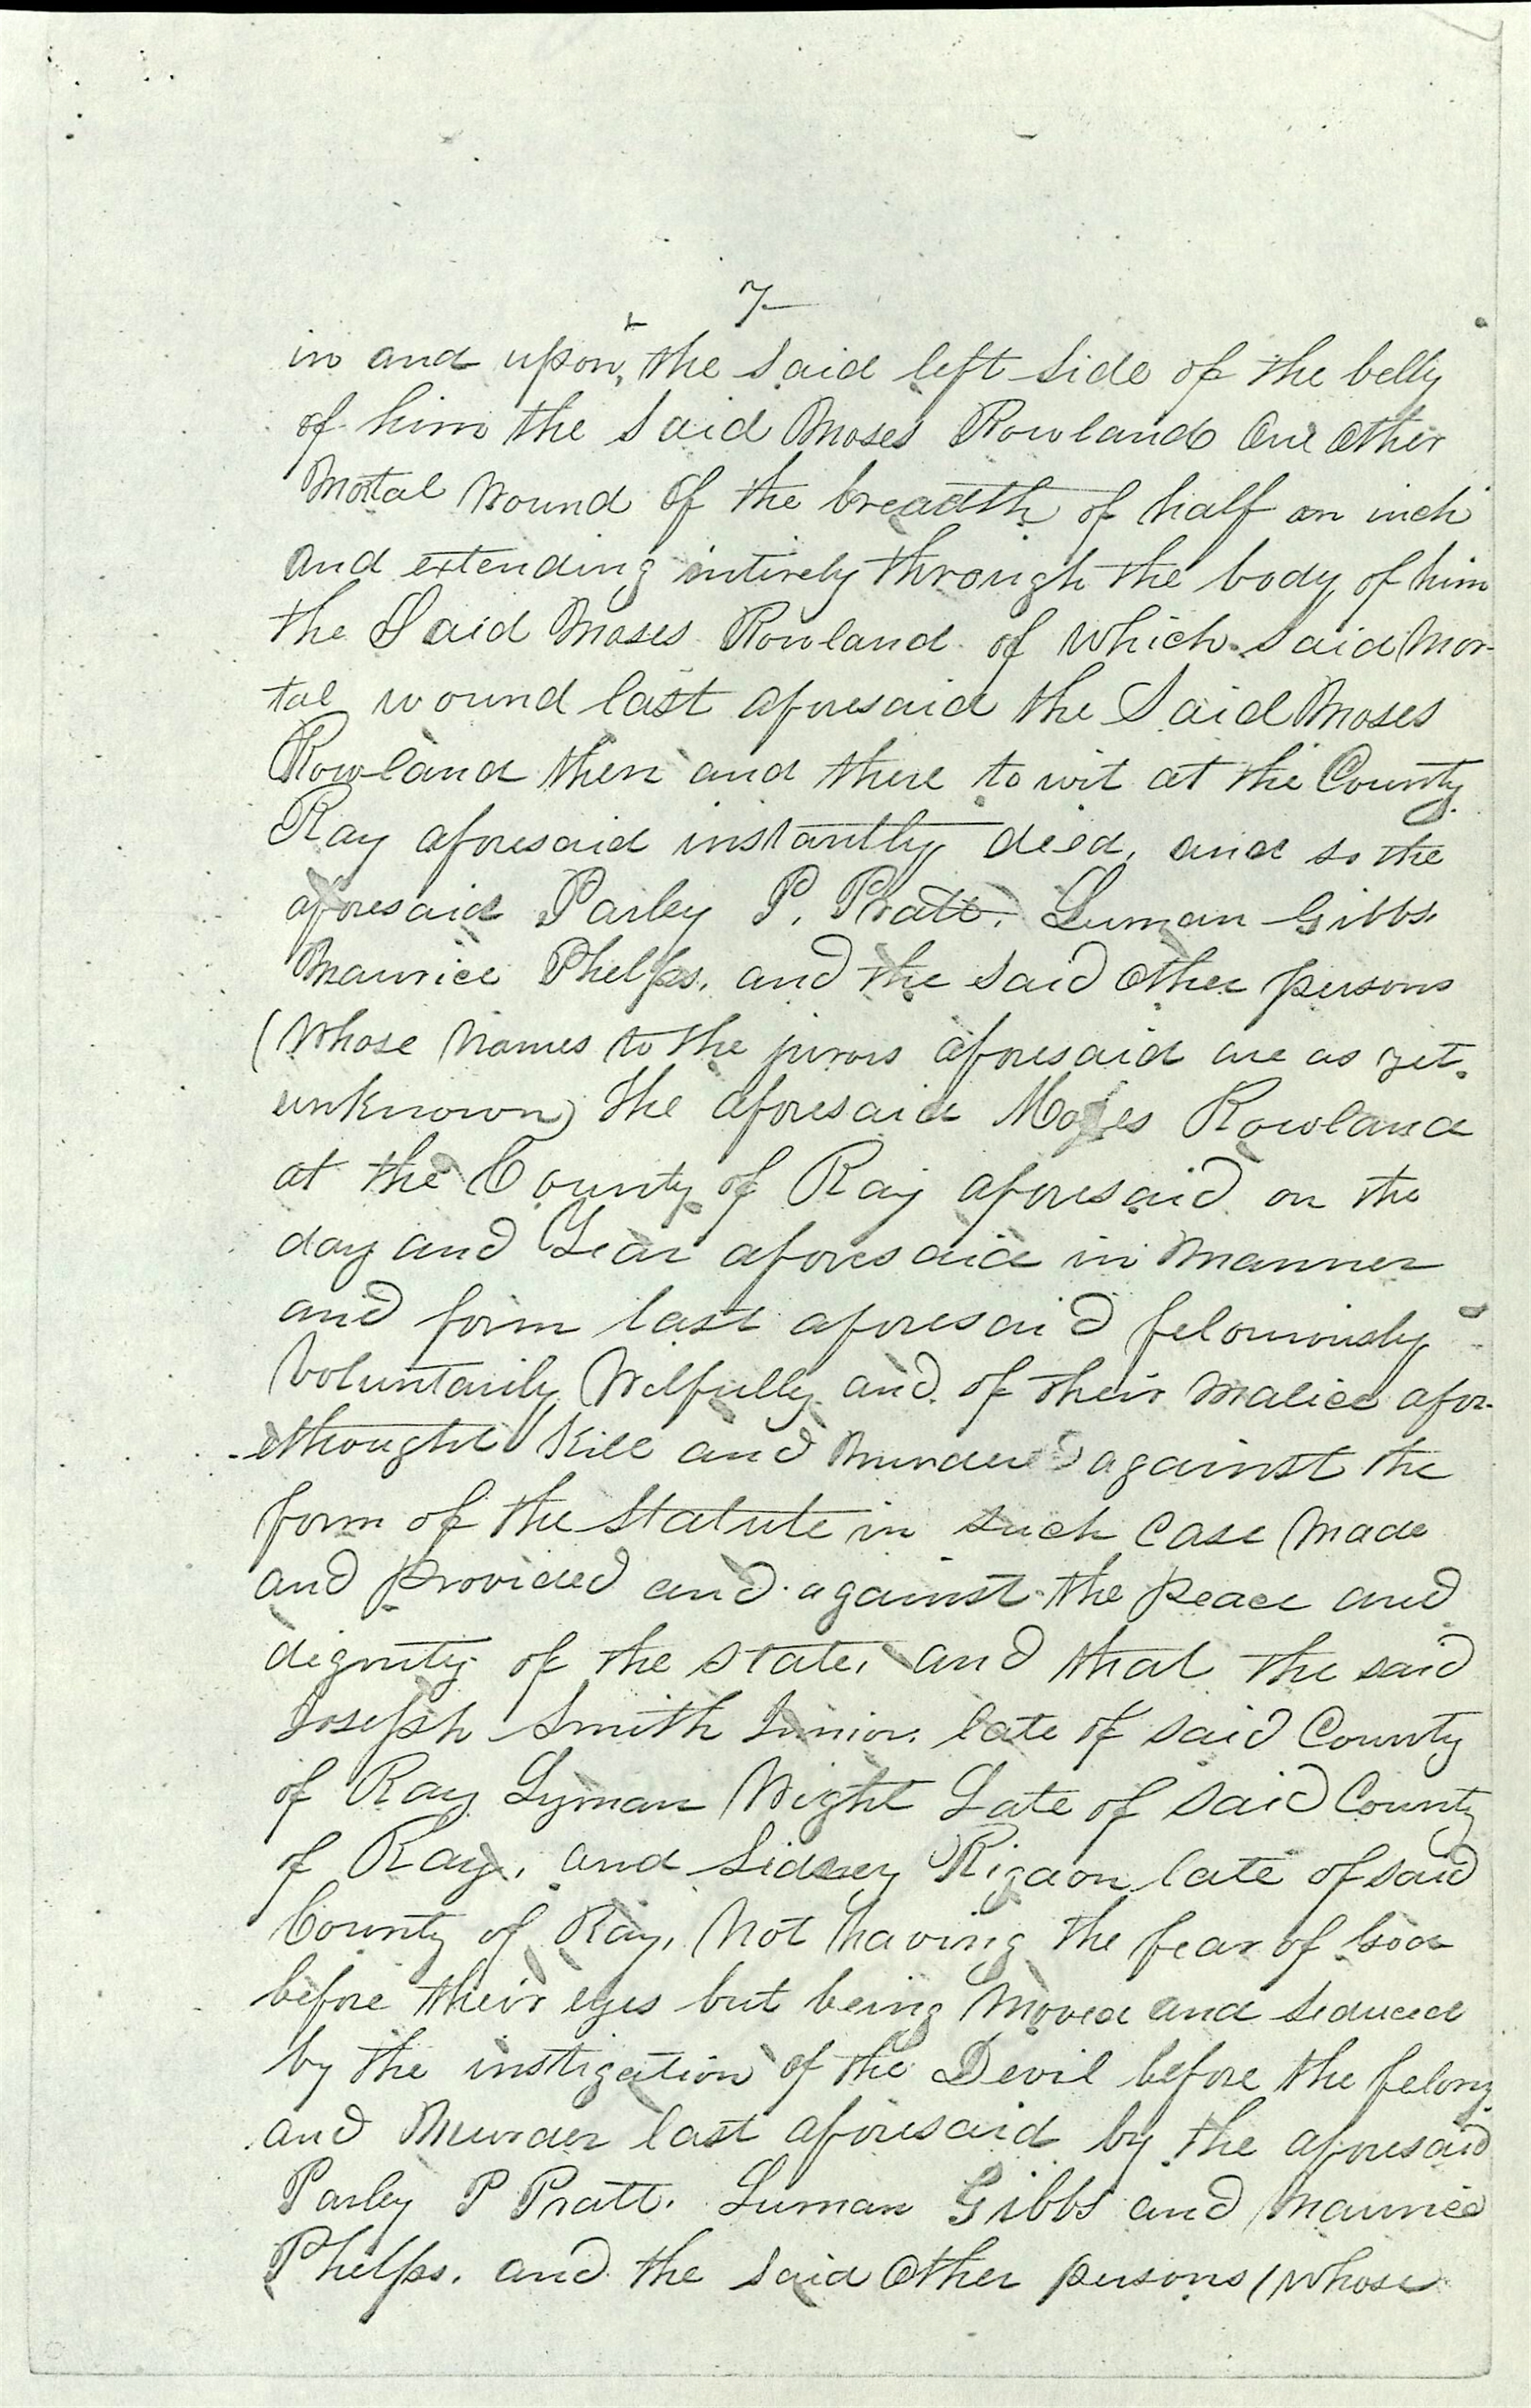 7
in and upon, the said left side of the belly
of him the said Moses Rowland One other
Mortal wound of the breadth of half an inch
and extending intirely through the body of him
the Said Moses Rowland of which said Mor-
tal wound last aforesaid the Said Moses
Rowland then and there to wit at the County
Ray aforesaid instantly died, and so the
aforesaid Parley P. Pratt. Luman Gibbs,
Maurice Phelps, and the said other persons
(Whose Names to the jurors aforesaid are as yet
unknown) the aforesaid Moses Rowland
at the County of Ray aforesaid on the
day and Year aforesaid in Manner
and form last aforesaid feloniously
Voluntarily Wilfully and of their malice afor-
ethought kill and Murder against the
form of the Statute in such case Made
and provided and against the peace and
dignity of the State, and that the said
Joseph Smith Junior, late of said County
of Ray Lyman Wight Late of said County
of Ray, and Sidney Rigdon late of said
County of Ray, Not having the fear of God
before their eyes but being Moved and seduced
by the instigation of the Devil before the felony
and Murder last aforesaid by the aforesaid
Parley P Pratt. Luman Gibbs and Maurice
Phelps. and the said Other persons (whose